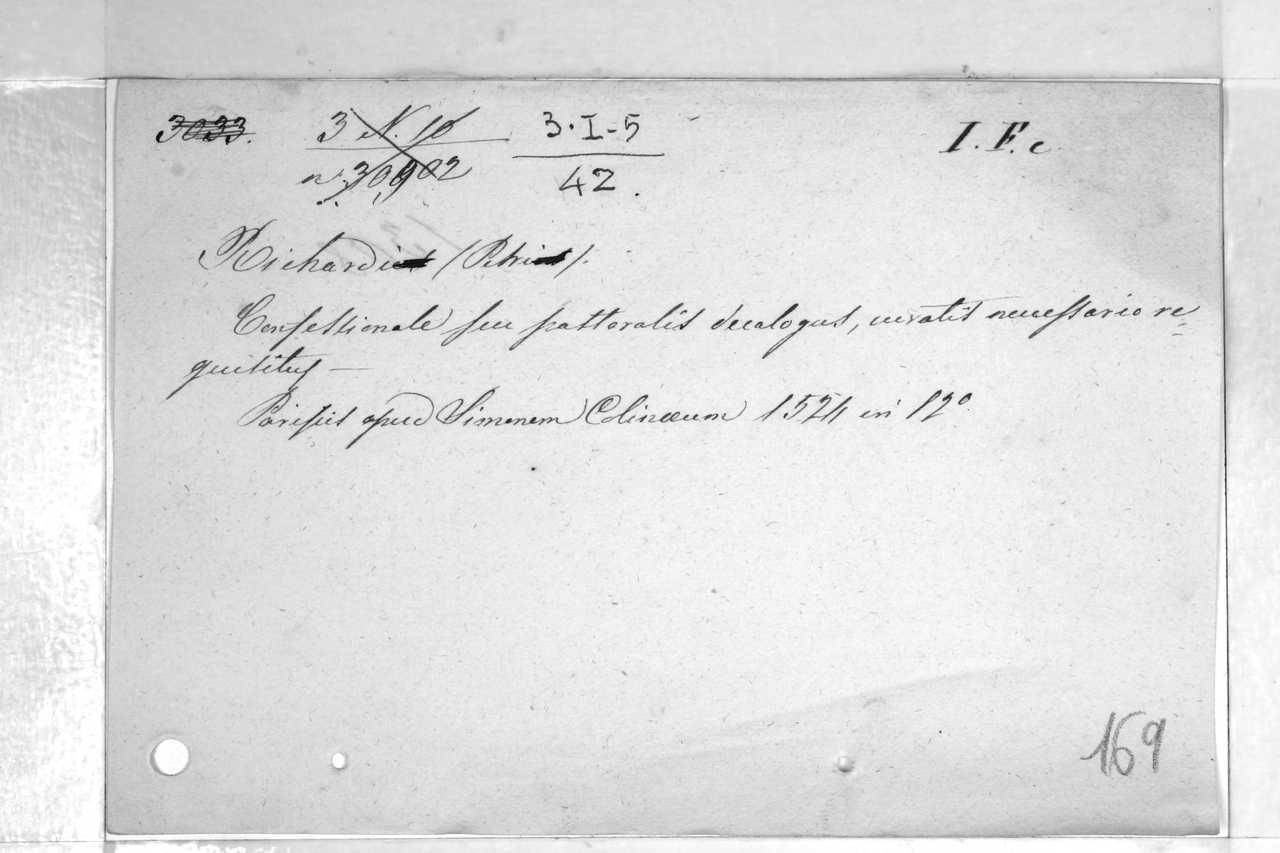 3033. 3 N. 10 3·I-5 I. F. c.
nº 30,902 42.
Richardi (Petri).
Confessionale seu pastoralis decalogus, curatis necessario re=
quisitus —
Parisiis apud Simonem Colinæum 1524 in 12º
169